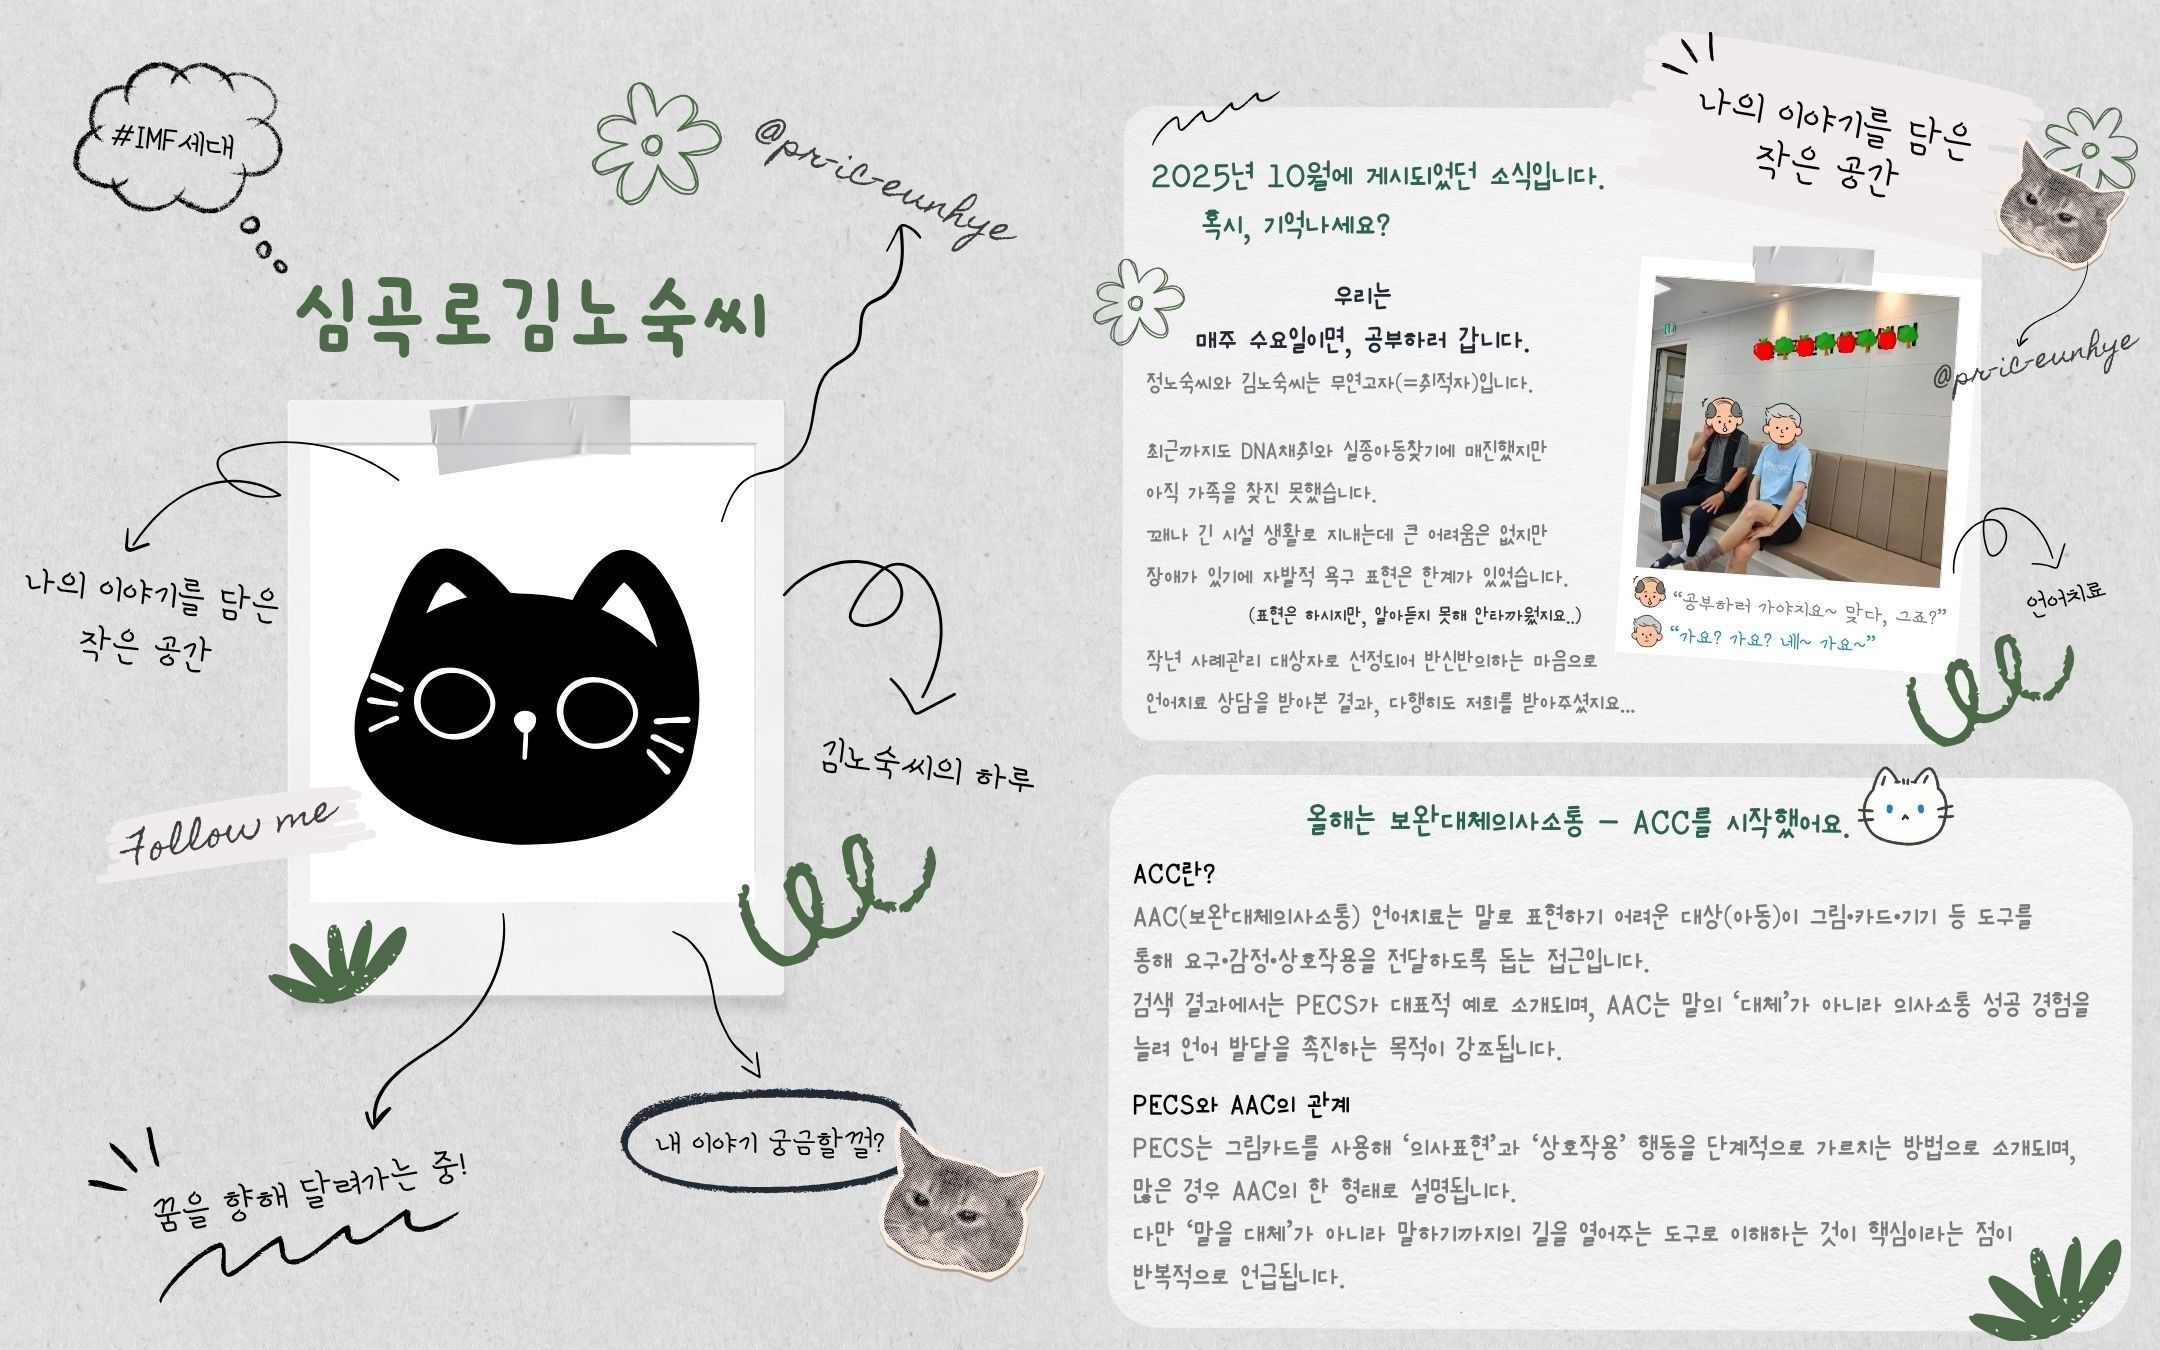 #IMF세대
@pr-ic-eunhye
심곡로김노숙씨
나의 이야기를 담은
작은 공간
김노숙씨의 하루
Follow me
내 이야기 궁금할껄?
꿈을 향해 달려가는 중!
나의 이야기를 담은
작은 공간
2025년 10월에 게시되었던 소식입니다.
혹시, 기억나세요?
우리는
매주 수요일이면, 공부하러 갑니다.
정노숙씨와 김노숙씨는 무연고자(=취적자)입니다.
최근까지도 DNA채취와 실종아동찾기에 매진했지만
아직 가족을 찾진 못했습니다.
꽤나 긴 시설 생활로 지내는데 큰 어려움은 없지만
장애가 있기에 자발적 욕구 표현은 한계가 있었습니다.
(표현은 하시지만, 알아듣지 못해 안타까웠지요..)
작년 사례관리 대상자로 선정되어 반신반의하는 마음으로
언어치료 상담을 받아본 결과, 다행히도 저희를 받아주셨지요...
@pr-ic-eunhye
언어치료
“공부하러 가야지요~ 맞다, 그죠?”
“가요? 가요? 네~ 가요~”
올해는 보완대체의사소통 - ACC를 시작했어요.
ACC란?
AAC(보완대체의사소통) 언어치료는 말로 표현하기 어려운 대상(아동)이 그림•카드•기기 등 도구를
통해 요구•감정•상호작용을 전달하도록 돕는 접근입니다.
검색 결과에서는 PECS가 대표적 예로 소개되며, AAC는 말의 ‘대체’가 아니라 의사소통 성공 경험을
늘려 언어 발달을 촉진하는 목적이 강조됩니다.
PECS와 AAC의 관계
PECS는 그림카드를 사용해 ‘의사표현’과 ‘상호작용’ 행동을 단계적으로 가르치는 방법으로 소개되며,
많은 경우 AAC의 한 형태로 설명됩니다.
다만 ‘말을 대체’가 아니라 말하기까지의 길을 열어주는 도구로 이해하는 것이 핵심이라는 점이
반복적으로 언급됩니다.